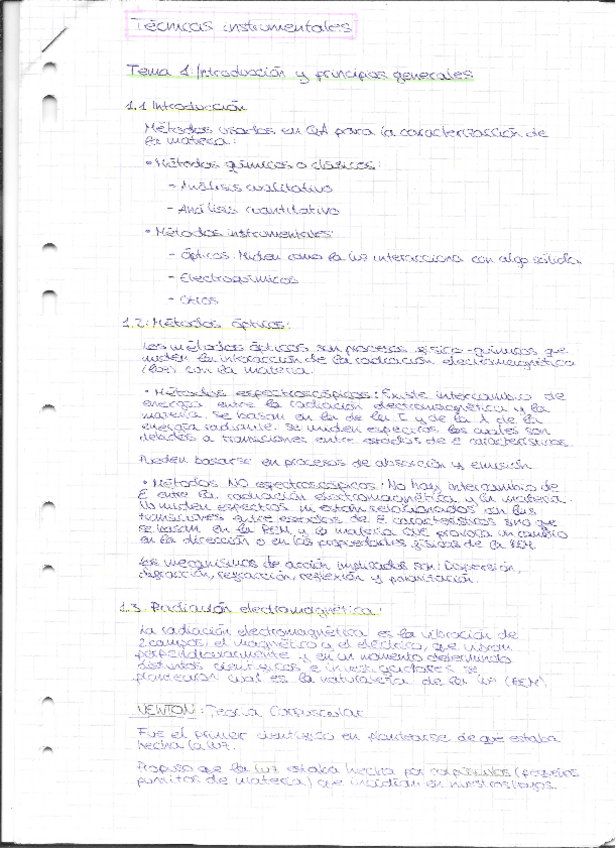 Técnicas instrumentales
Tema 1: Introducción y principios generales
1.1 Introducción
Métodos usados en QA para la caracterización de
la materia:
• Métodos químicos o clásicos:
- Análisis cualitativo
- Análisis cuantitativo
• Métodos instrumentales:
- Ópticos: Miden como la luz interacciona con algo
- Electroquímicos
- Otros
1.2: Métodos ópticos:
Los métodos ópticos son procesos físico-químicos que
miden la interacción de la radiación electromagnética
(luz) con la materia.
• Métodos espectroscópicos: Existe intercambio de
energía entre la radiación electromagnética y la
materia. Se basan en la de la I y de la λ de la
energía radiante. Se miden espectros los cuales son
debidos a transiciones entre estados de E característicos.
Pueden basarse en procesos de absorción y emisión
• Métodos NO espectroscópicos: No hay intercambio de
E entre la radiación electromagnética y la materia.
No miden espectros ni están relacionados con las
transiciones entre estados de E característicos sino que
se basan en la REM y la materia que provoca un cambio
en la dirección o en las propiedades físicas de la REM.
Los mecanismos de acción implicados son: Dispersión,
difracción, refracción, reflexión y polarización.
1.3 Radiación electromagnética:
La radiación electromagnética es la vibración de
2 campos, el magnético y el eléctrico, que vibran
perpendicularmente y en un momento determinado
distintos científicos e investigadores se
plantearon cual es la naturaleza de la luz (REM).
NEWTON: Teoría Corpuscular
Fue el primer científico en plantearse de que estaba
hecha la luz.
Propuso que la luz estaba hecha por corpúsculos (pequeños
puntitos de materia) que incidían en nuestros ojos.